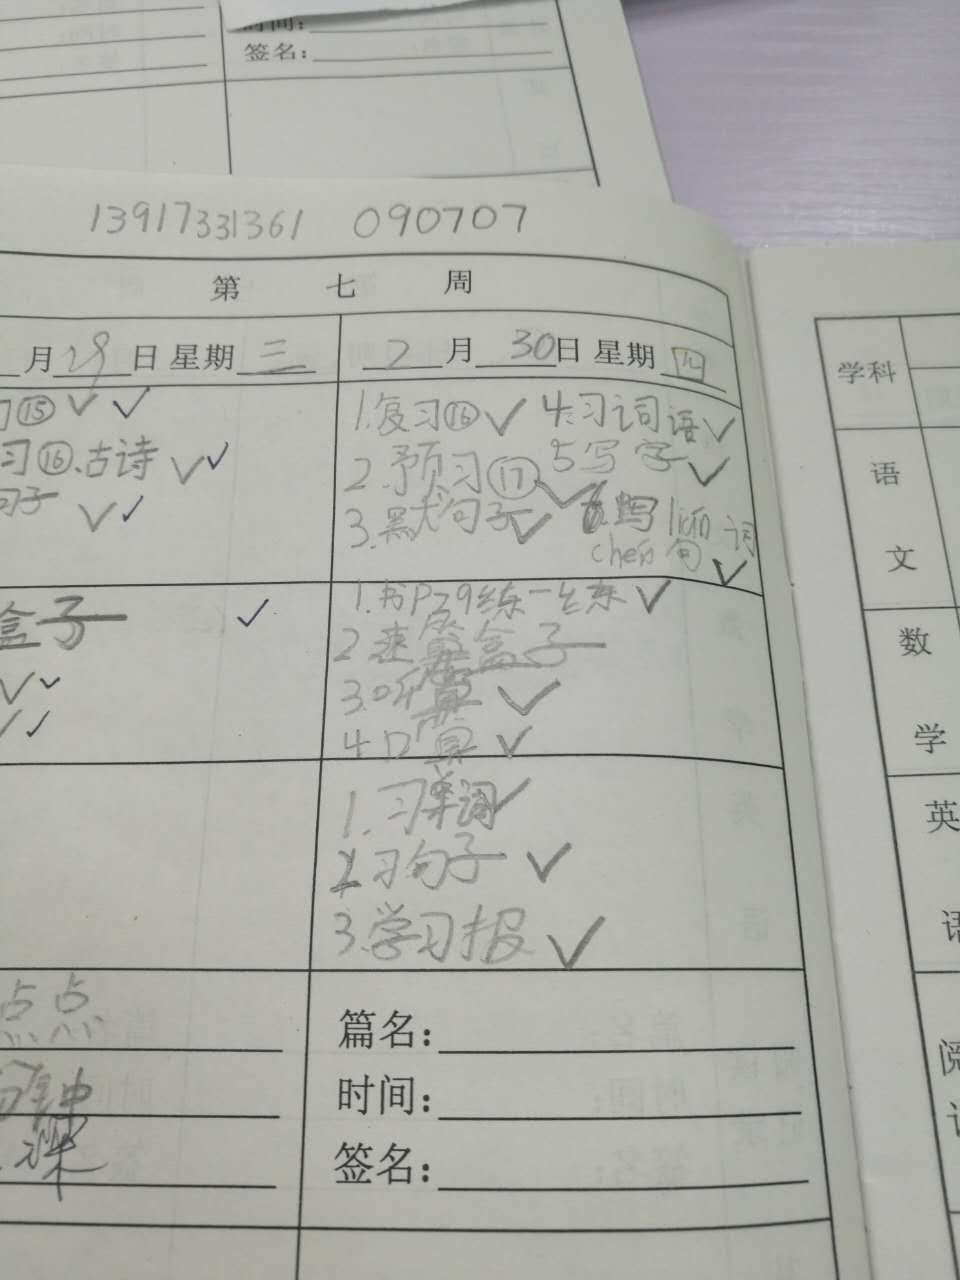 时间:
签名:
13917331361 090707
第 七 周
月29日 星期三
2月30日 星期四
习⑮
习⑯、古诗
句子
1.复习⑯ 4.习词语
2.预习⑰ 5.写字
3.默句子 写 词
chen 句
盒子
1.书P29练一练
2.速算盒子
3.听算
4.口算
1.习单词
2.习句子
3.学习报
点点
分钟
篇名:
时间:
签名:
学科
语
文
数
学
英
语
阅